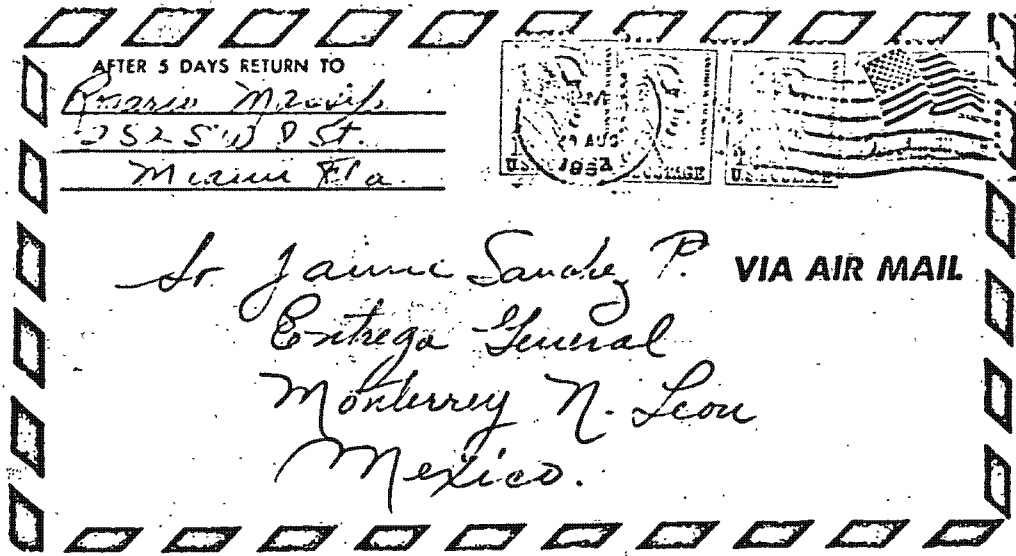 AFTER 5 DAYS RETURN TO
Rosario
St.
Miami Fla.
AUG
U.S. POSTAGE U.S. POSTAGE
Sr Jaime Sanchez P.
VIA AIR MAIL
Entrega General
Monterrey N. Leon
Mexico.